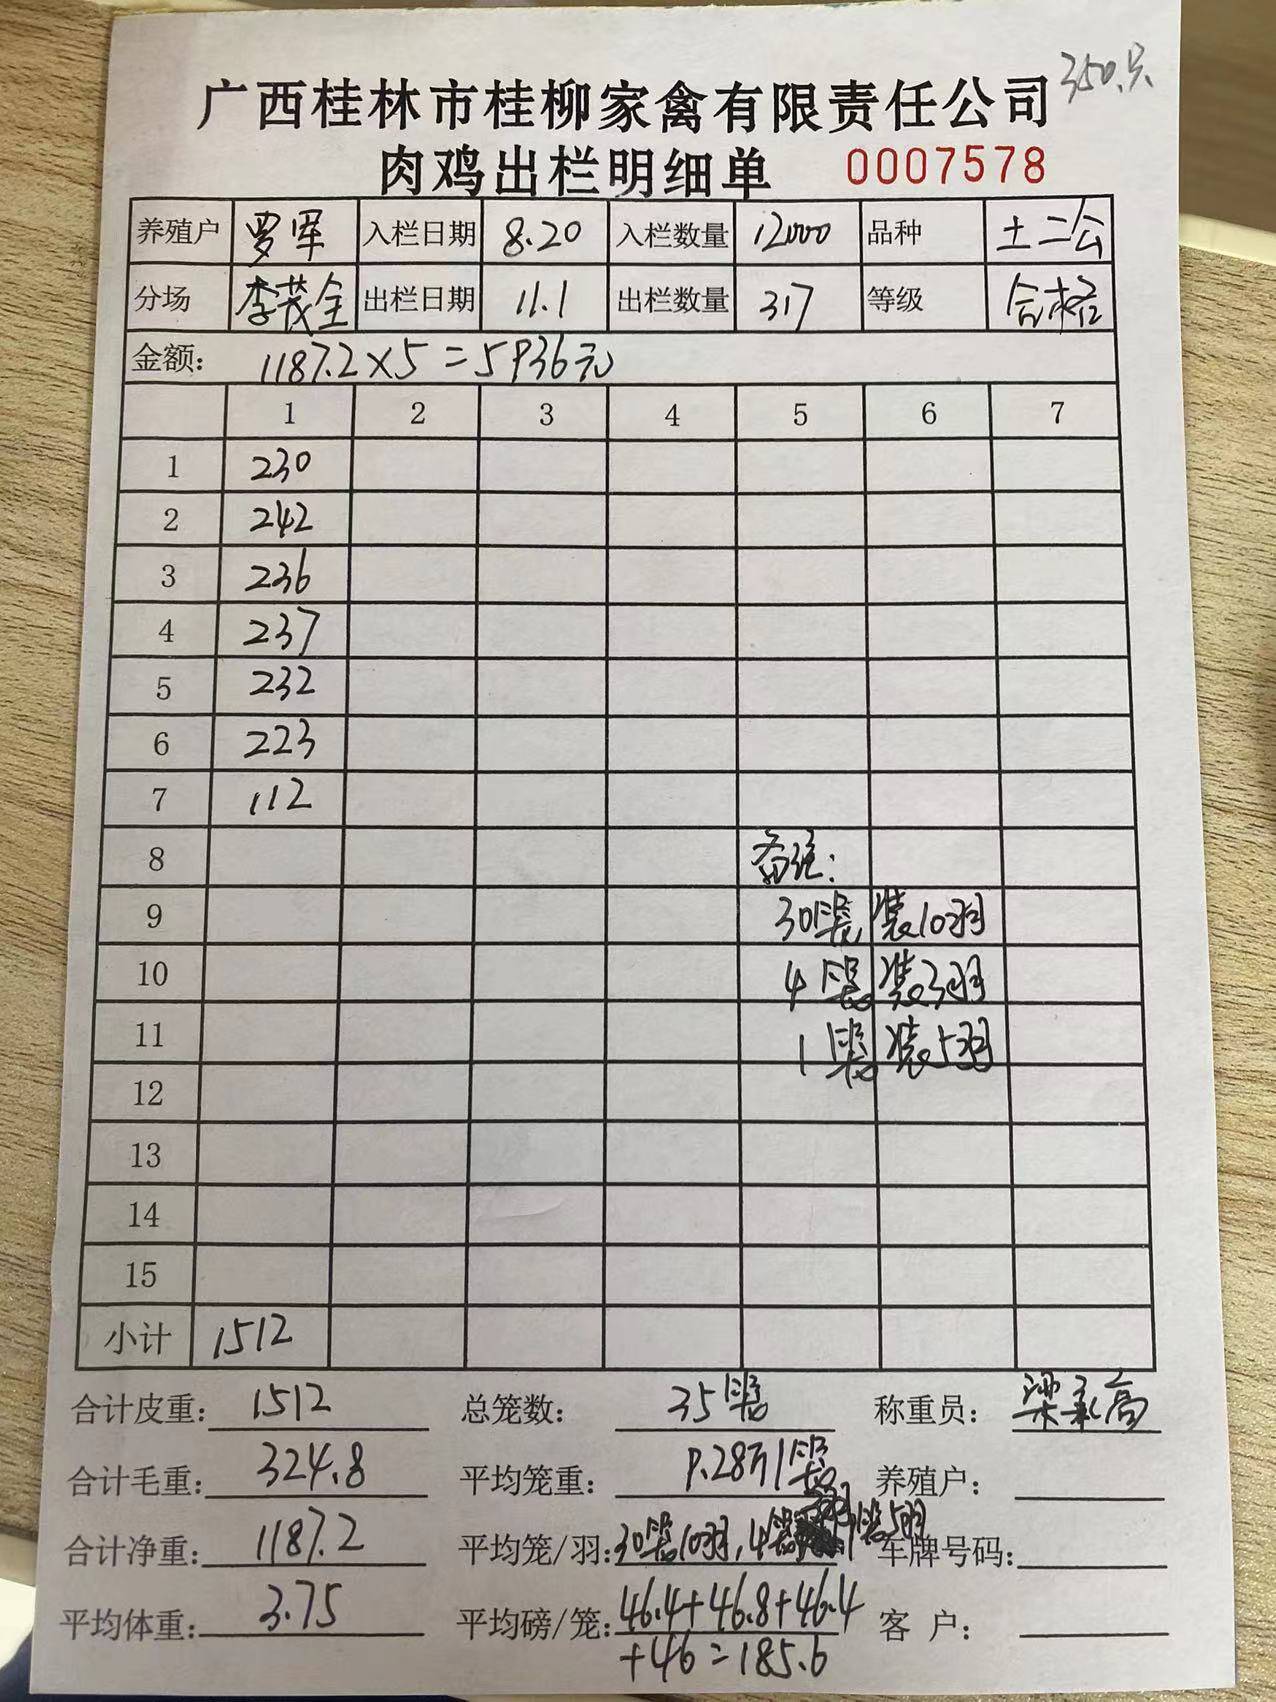 350只
广西桂林市桂柳家禽有限责任公司
肉鸡出栏明细单 0007578
养殖户 罗军 入栏日期 8.20 入栏数量 12000 品种 土二公
分场 李茂全 出栏日期 11.1 出栏数量 317 等级 合格
金额: 1187.2×5=5936元
1 2 3 4 5 6 7
1 230
2 242
3 236
4 237
5 232
6 223
7 112
8 备注:
9 30笼装10羽
10 4笼装3羽
11 1笼装5羽
12
13
14
15
小计 1512
合计皮重: 1512 总笼数: 35笼 称重员: 梁承高
合计毛重: 324.8 平均笼重: 9.28斤/笼 养殖户:
合计净重: 1187.2 平均笼/羽: 30笼10羽,4笼3羽,1笼5羽 车牌号码:
平均体重: 3.75 平均磅/笼: 46.4+46.8+46.4 客 户:
+46=185.6